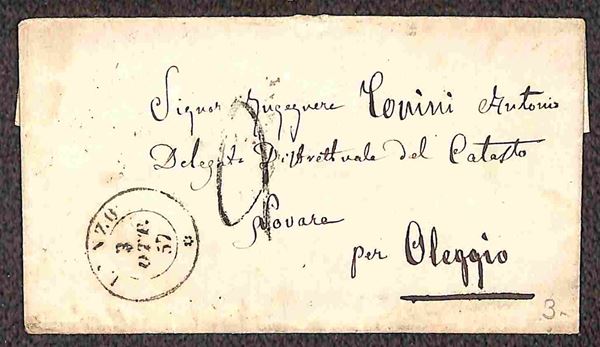 Signor Ingegnere Tonini Antonio
Delegato Distrettuale del Catasto
Novara
per Oleggio
3
OTT.
57
3